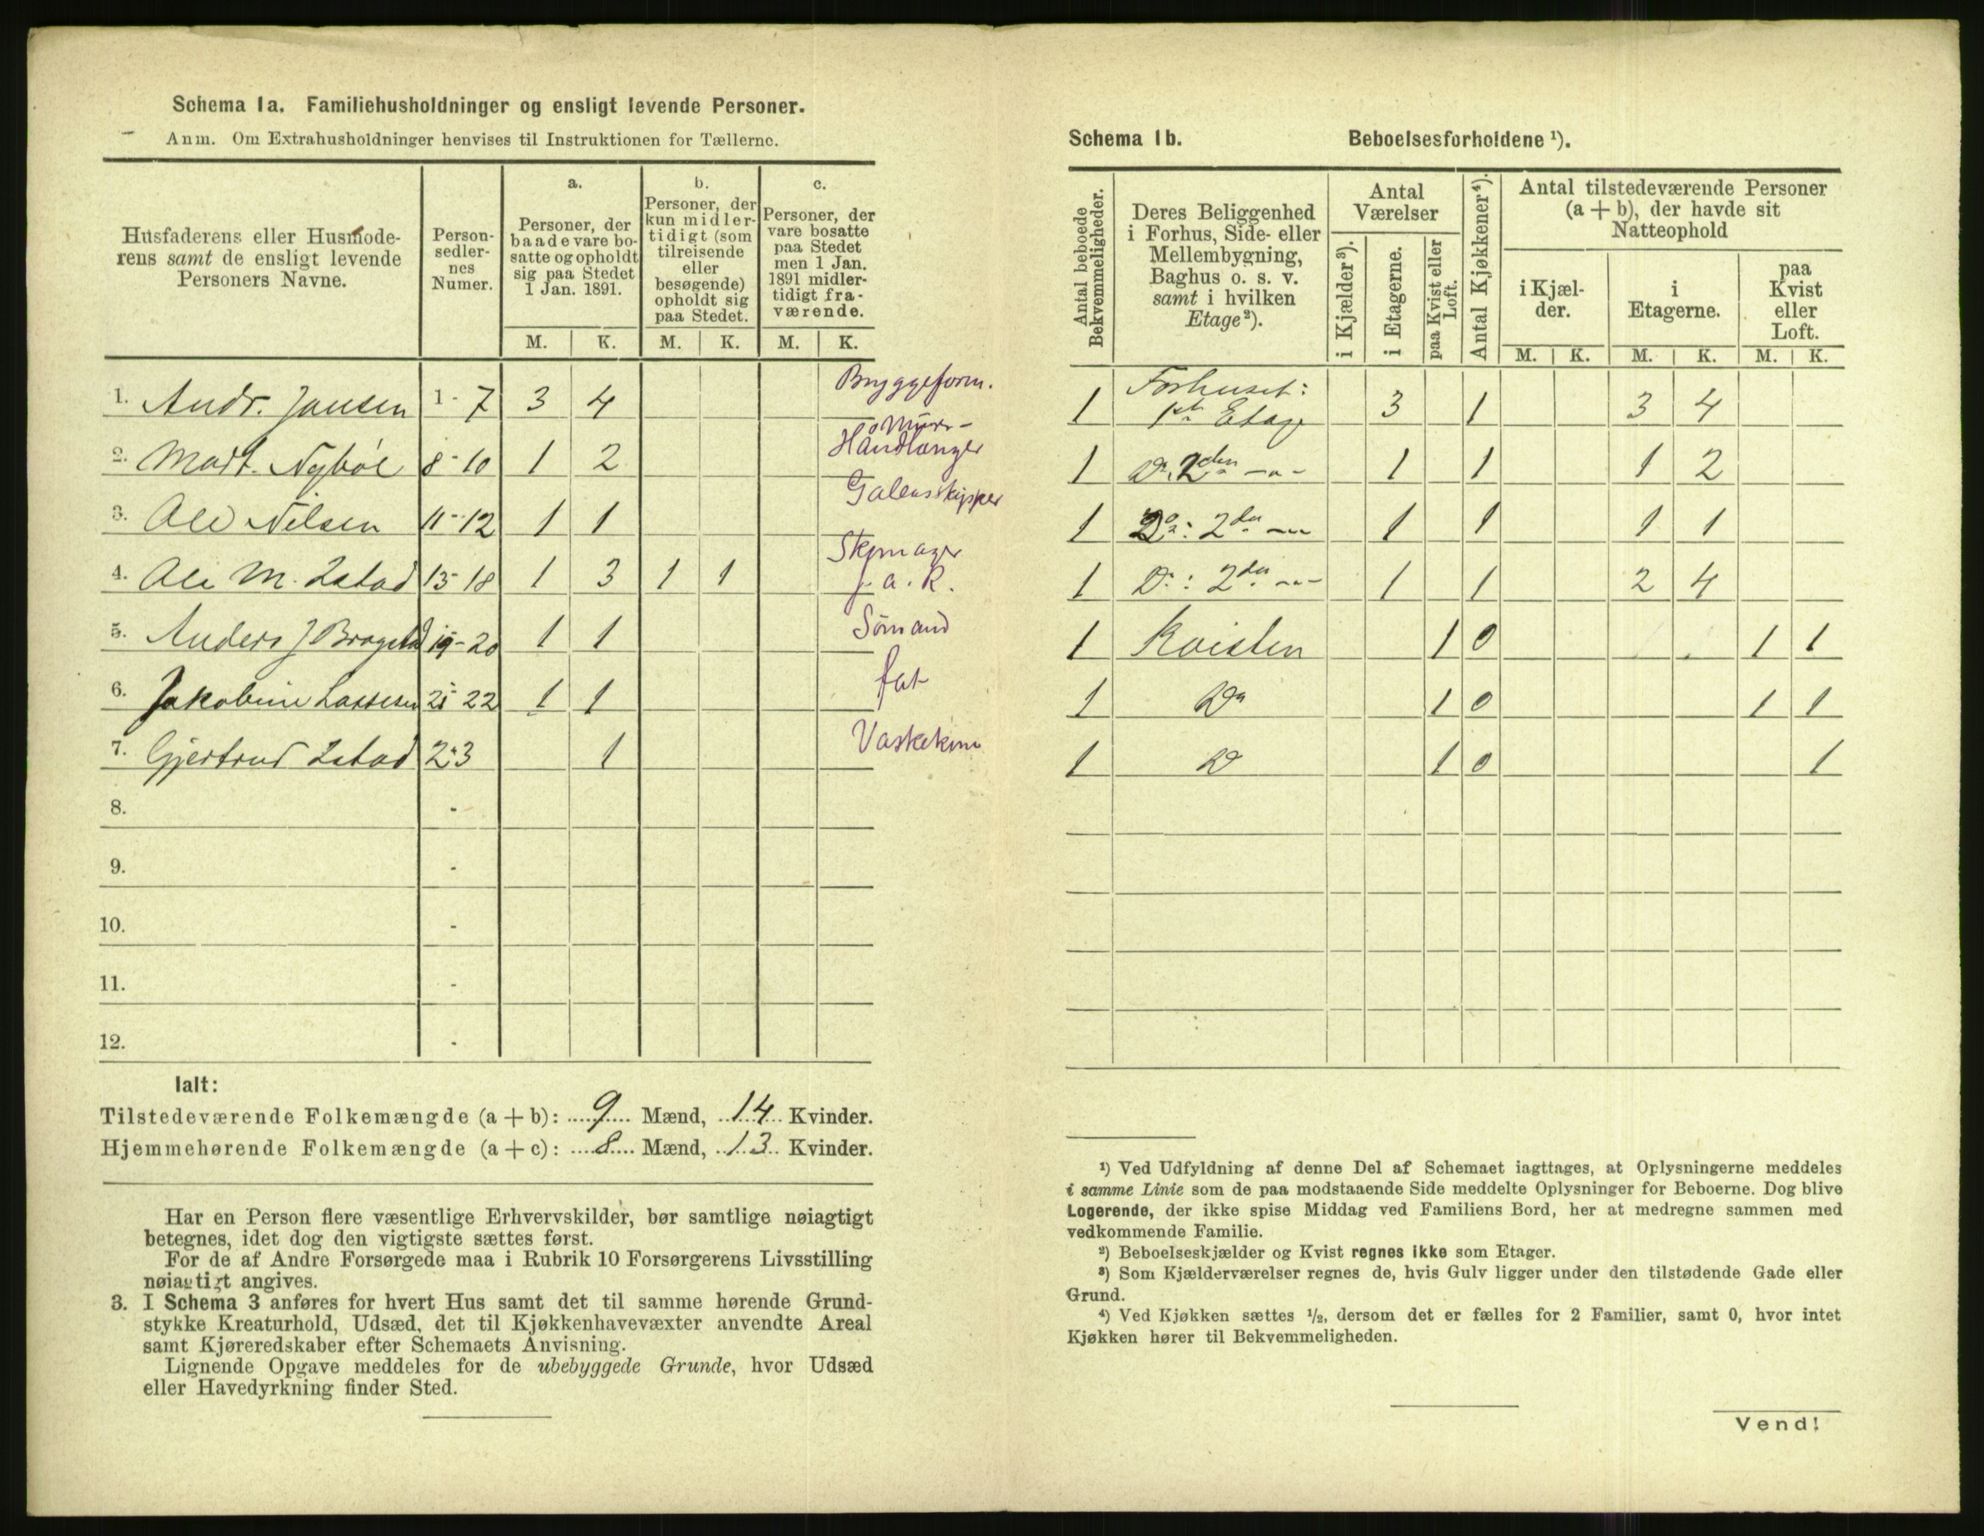 Schema 1a. Familiehusholdninger og ensligt levende Personer.
Anm. Om Extrahusholdninger henvises til Instruktionen for Tællerne.
Husfaderens eller Husmode-
rens samt de ensligt levende
Personers Navne.
Person-
sedler-
nes
Numer.
a.
Personer, der
baade vare bo-
satte og opholdt
sig paa Stedet
1 Jan. 1891.
b.
Personer, der
kun midler-
tidigt (som
tilreisende
eller
besøgende)
opholdt sig
paa Stedet.
c.
Personer, der
vare bosatte
paa Stedet
men 1 Jan.
1891 midler-
tidigt fra-
værende.
M. K. M. K. M. K.
1. Andr. Jansen 1 - 7 3 4 Bryggeform.
2. Mart. Nybøe 8 - 10 1 2 Murer-
Håndlanger
3. Ole Nilsen 11 - 12 1 1 Galeasskipper
4. Ole M. Lstad 13 - 18 1 3 1 1 Skomager
f. a. R.
5. Anders J 19 - 20 1 1 Sømand
6. Jakobine Lassesen 21 - 22 1 1 fat
7. Gjertrud Lstad 23 1 Vaskekone
8. -
9. -
10. -
11. -
12. -
Ialt:
Tilstedeværende Folkemængde (a + b): 9 Mænd, 14 Kvinder.
Hjemmehørende Folkemængde (a + c): 8 Mænd, 13 Kvinder.
Har en Person flere væsentlige Erhvervskilder, bør samtlige nøiagtigt
betegnes, idet dog den vigtigste sættes først.
For de af Andre Forsørgede maa i Rubrik 10 Forsørgerens Livsstilling
nøiagtigt angives.
3. I Schema 3 anføres for hvert Hus samt det til samme hørende Grund-
stykke Kreaturhold, Udsæd, det til Kjøkkenhavevæxter anvendte Areal
samt Kjøreredskaber efter Schemaets Anvisning.
Lignende Opgave meddeles for de ubebyggede Grunde, hvor Udsæd
eller Havedyrkning finder Sted.
Schema 1b. Beboelsesforholdene ¹).
Antal beboede
Bekvemmeligheder.
Deres Beliggenhed
i Forhus, Side- eller
Mellembygning,
Baghus o. s. v.
samt i hvilken
Etage²).
Antal
Værelser
i Kjælder³).
i Etagerne.
paa Kvist eller
Loft.
Antal Kjøkkener⁴).
Antal tilstedeværende Personer
(a + b), der havde sit
Natteophold
i Kjæl-
der.
i
Etagerne.
paa
Kvist
eller
Loft.
M. K. M. K. M. K.
1 Forhuset:
1ste Etage 3 1 3 4
1 Do. 2den -"- 1 1 1 2
1 Do: 2den -"- 1 1 1 1
1 Do: 2den -"- 1 1 2 4
1 Kvisten 1 0 1 1
1 Do 1 0 1 1
1 Do 1 0 1
¹) Ved Udfyldning af denne Del af Schemaet iagttages, at Oplysningerne meddeles
i samme Linie som de paa modstaaende Side meddelte Oplysninger for Beboerne. Dog blive
Logerende, der ikke spise Middag ved Familiens Bord, her at medregne sammen med
vedkommende Familie.
²) Beboelseskjælder og Kvist regnes ikke som Etager.
³) Som Kjælderværelser regnes de, hvis Gulv ligger under den tilstødende Gade eller
Grund.
⁴) Ved Kjøkken sættes ½, dersom det er fælles for 2 Familier, samt 0, hvor intet
Kjøkken hører til Bekvemmeligheden.
Vend!